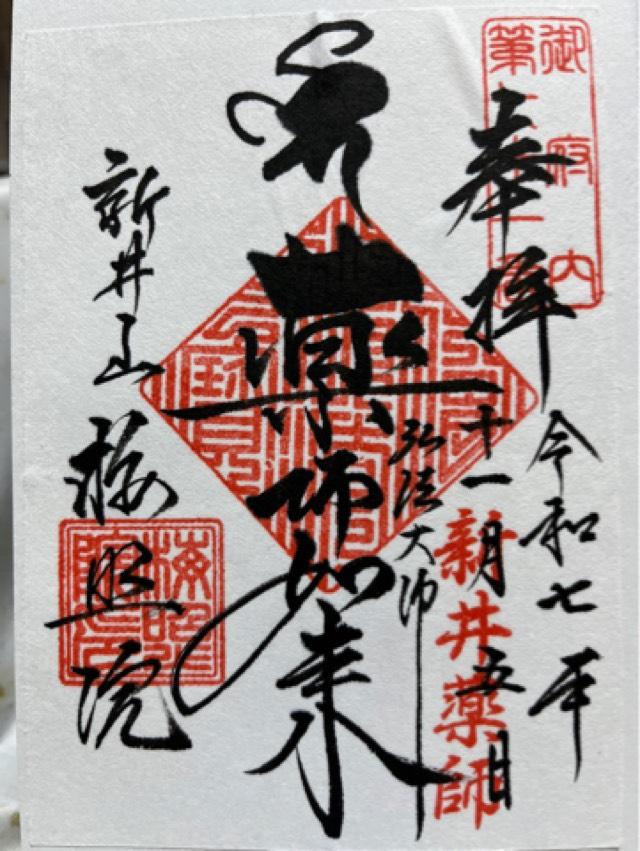 御府内
第
奉拝
令和七年
十一月五日
新井薬師
弘法大師
薬師如来
新井山
梅照院